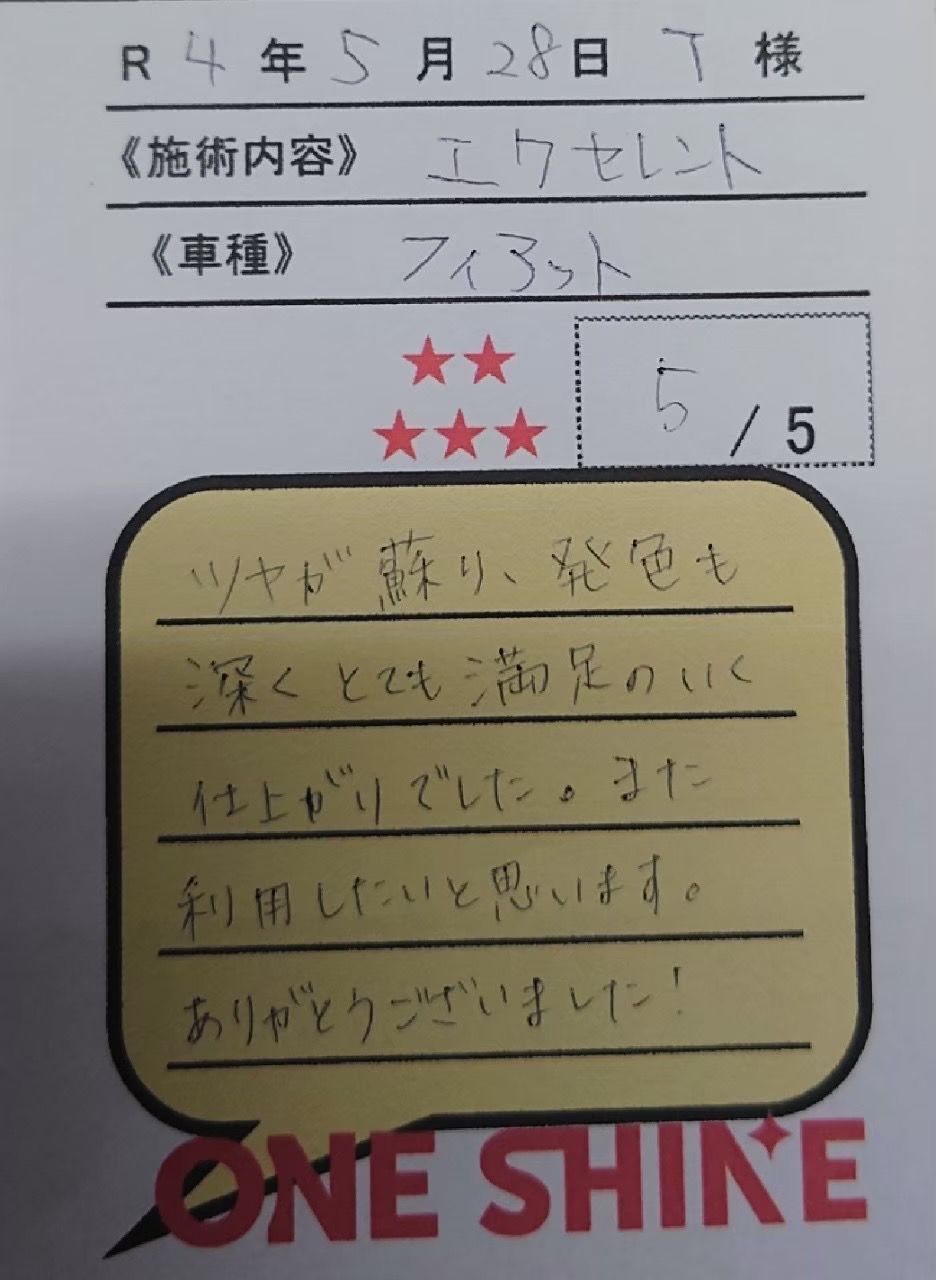 R 4 年 5 月 28 日 T 様
《施術内容》 エクセレント
《車種》 フィアット
★★
★★★ 5 / 5
ツヤが蘇り、発色も
深くとても満足のいく
仕上がりでした。また
利用したいと思います。
ありがとうございました!
ONE SHINE